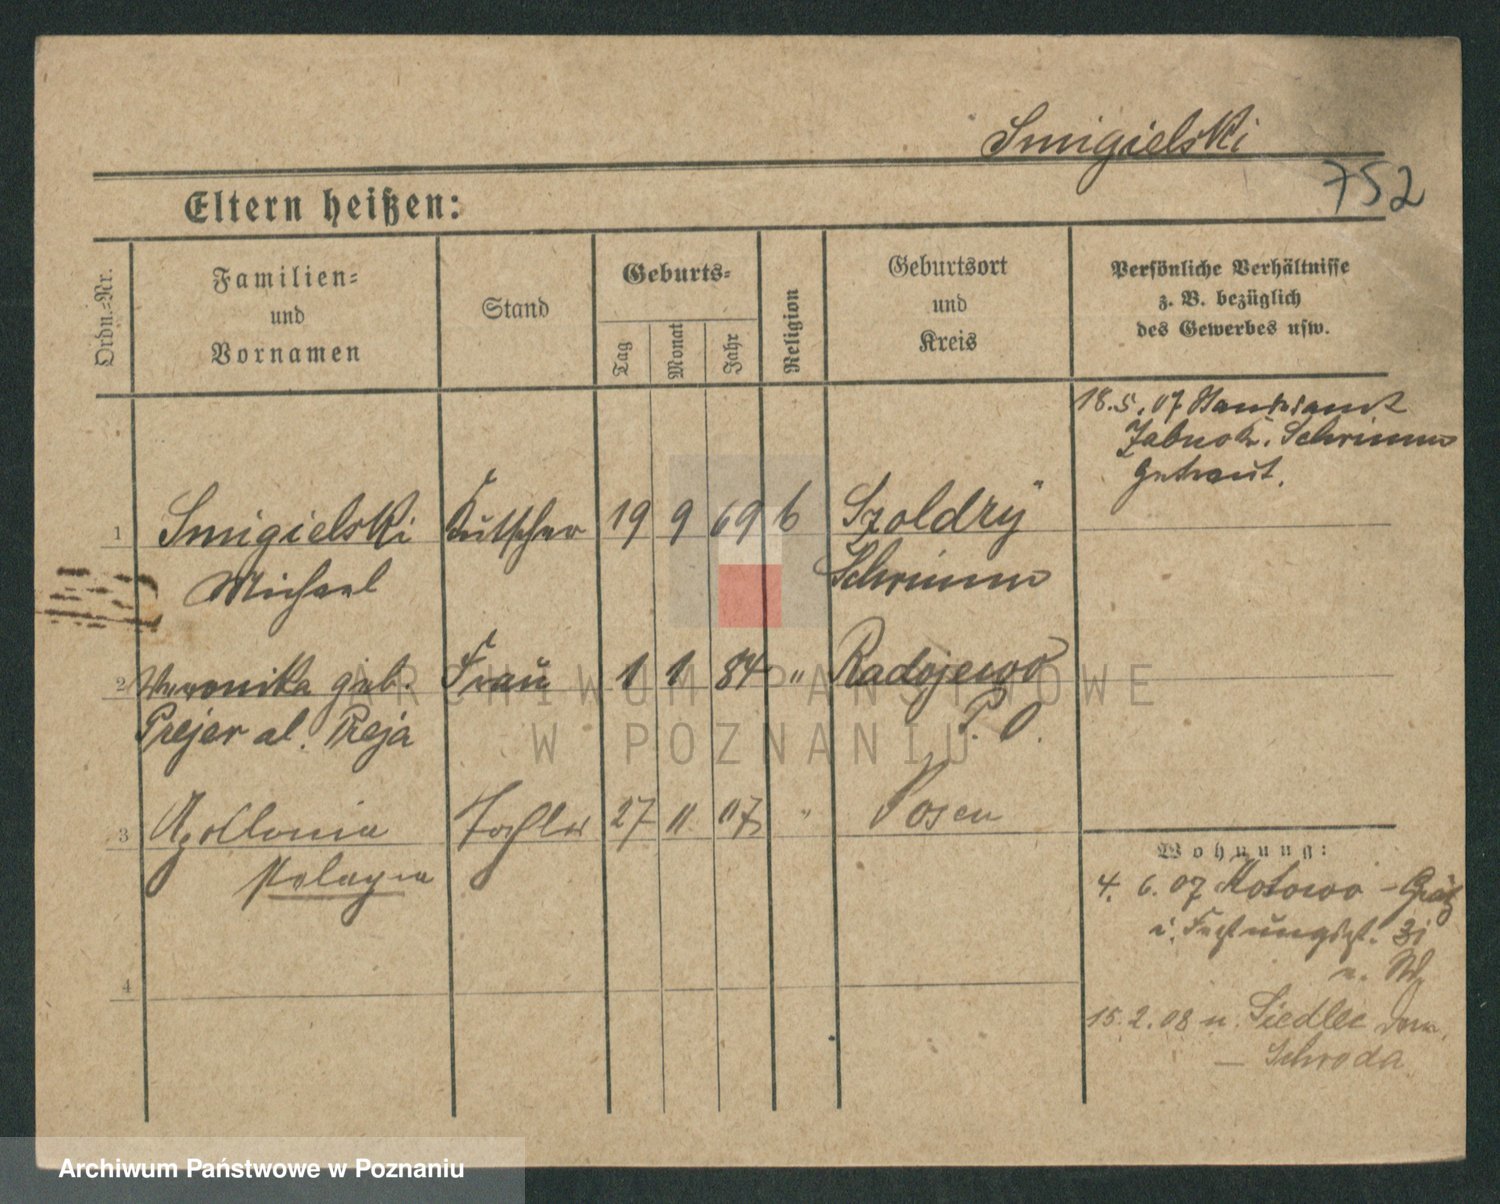 Smigielski
752
Eltern heißen:
Ordn.-Nr.
Familien-
und
Vornamen
Stand
Geburts-
Tag
Monat
Jahr
Religion
Geburtsort
und
Kreis
Persönliche Verhältnisse
z. B. bezüglich
des Gewerbes usw.
18.5.07 Standesamt
Zabno Kr. Schrimm
getraut.
1 Smigielski Kutscher 19 9 69 k Szoldry
Michael Schrimm
2 Veronika geb. Frau 1 1 84 " Radojewo
Prejer al. Preja P. O.
3 Apollonia Tochter 27 11 07 " Posen
Pelagia
4
Wohnung:
4. 6. 07 Kotowo - Grätz
i. Festungsgf.
15.2.08 n. Siedlec Dom.
- Schroda
ARCHIWUM PAŃSTWOWE
W POZNANIU
Archiwum Państwowe w Poznaniu